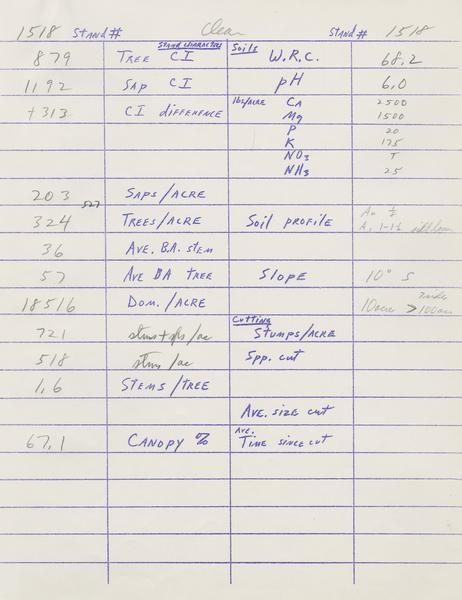 1518 STAND # Clear STAND # 1518
STAND CHARACTERS Soils
879 TREE CI W.R.C. 68.2
1192 SAP CI pH 6.0
+313 CI DIFFERENCE lbs/ACRE CA 2500
Mg 1500
P 20
K 175
NO3 T
NH3 25
203 SAPS/ACRE
527
324 TREES/ACRE Soil PROFILE A0 ½
A1 1-1½
36 AVE. B.A. STEM
57 AVE BA TREE SLOPE 10° S
18516 DOM./ACRE 10acres >100acres
Cutting
721 stms+spls/ac STUMPS/ACRE
518 stms/ac Spp. cut
1.6 STEMS/TREE
AVE. SIZE CUT
AVE.
67.1 CANOPY % TIME SINCE CUT